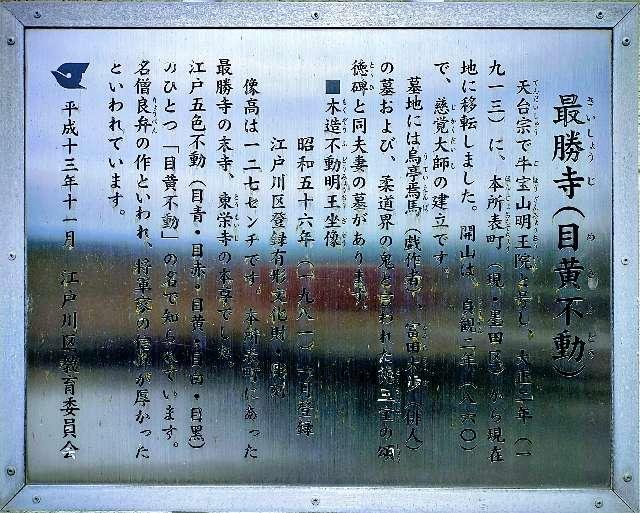 最勝寺(目黄不動)
天台宗で牛宝山明王院と号し、大正二年(一
九一三)に、本所表町(現・墨田区)から現在
地に移転しました。開山は、貞観二年(八六〇)
で、慈覚大師の建立です。
墓地には烏亭焉馬(戯作者)、富田木歩(俳人)
の墓および、柔道界の鬼と言われた徳三宝の頌
徳碑と同夫妻の墓があります。
■木造不動明王坐像
昭和五十六年(一九八一)
月登録
江戸川区登録有形文化財・彫刻
像高は一二七センチです。本所表町にあった
最勝寺の末寺、東栄寺の本尊でした。
江戸五色不動(目青・目赤・目黄・目白・目黒)
のひとつ「目黄不動」の名で知られています。
名僧良弁の作といわれ、将軍家の信仰が厚かった
といわれています。
平成十三年十一月 江戸川区教育委員会